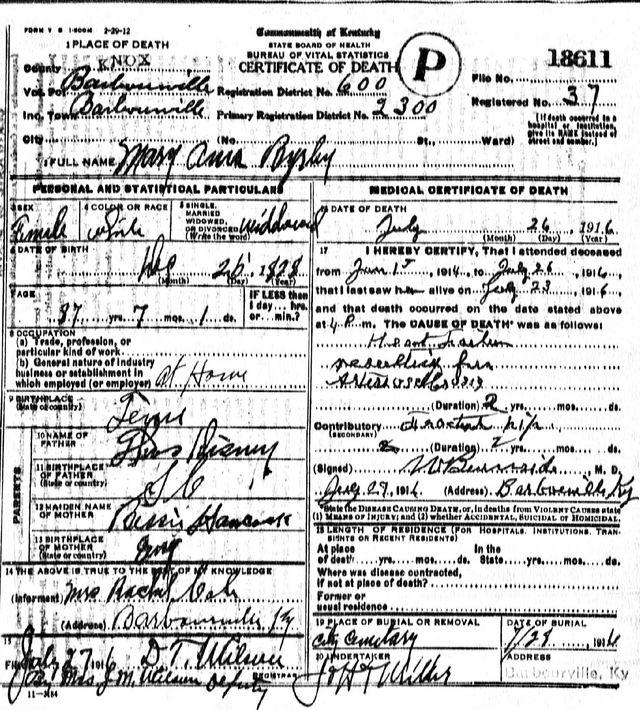 FORM V S 1-500M 2-29-12
Commonwealth of Kentucky
STATE BOARD OF HEALTH
BUREAU OF VITAL STATISTICS
CERTIFICATE OF DEATH
P
18611
1 PLACE OF DEATH
County KNOX
Vot. Pct. Barbourville Registration District No. 600
File No.
Inc. Town Barbourville Primary Registration District No. 2300
Registered No. 37
City (No. St., Ward)
[If death occurred in a hospital or institution, give its NAME instead of street and number.]
2 FULL NAME Mary Ann Bysby
PERSONAL AND STATISTICAL PARTICULARS
3 SEX Female
4 COLOR OR RACE White
5 SINGLE, MARRIED WIDOWED, OR DIVORCED (Write the word) Widowed
6 DATE OF BIRTH
Dec 26 1828
(Month) (Day) (Year)
7 AGE
87 yrs. 7 mos. 1 ds.
IF LESS than 1 day... hrs. or... min.?
8 OCCUPATION
(a) Trade, profession, or particular kind of work
(b) General nature of industry business or establishment in which employed (or employer) At Home
9 BIRTHPLACE (State or country) Tenn
PARENTS
10 NAME OF FATHER
11 BIRTHPLACE OF FATHER (State or country) S C
12 MAIDEN NAME OF MOTHER Hancock
13 BIRTHPLACE OF MOTHER (State or country)
14 THE ABOVE IS TRUE TO THE BEST OF MY KNOWLEDGE
(Informant) Mrs Rachel
(Address) Barbourville Ky
15
Filed July 27 1916 D. T. Wilson
REGISTRAR
By Mrs J. M. Wilson Deputy
11-3184
MEDICAL CERTIFICATE OF DEATH
16 DATE OF DEATH
July 26, 1916
(Month) (Day) (Year)
17 I HEREBY CERTIFY, That I attended deceased
from June 1st, 1914, to July 26, 1916,
that I last saw h alive on July 23, 1916
and that death occurred on the date stated above
at 4 P. m. The CAUSE OF DEATH* was as follows:
Heart
(Duration) 2 yrs. mos. ds.
Contributory (SECONDARY) Fractured hip
(Duration) 2 yrs. mos. ds.
(Signed) M. D.
July 27, 1916 (Address) Barbourville Ky
*State the DISEASE CAUSING DEATH, or, in deaths from VIOLENT CAUSES state (1) MEANS OF INJURY; and (2) whether ACCIDENTAL, SUICIDAL or HOMICIDAL.
18 LENGTH OF RESIDENCE (FOR HOSPITALS, INSTITUTIONS, TRANSIENTS OR RECENT RESIDENTS)
At place of death yrs. mos. ds. In the State yrs. mos. ds.
Where was disease contracted, if not at place of death?
Former or usual residence
19 PLACE OF BURIAL OR REMOVAL
City Cemetary
DATE OF BURIAL
7/28 1916
20 UNDERTAKER
ADDRESS
Barbourville, Ky